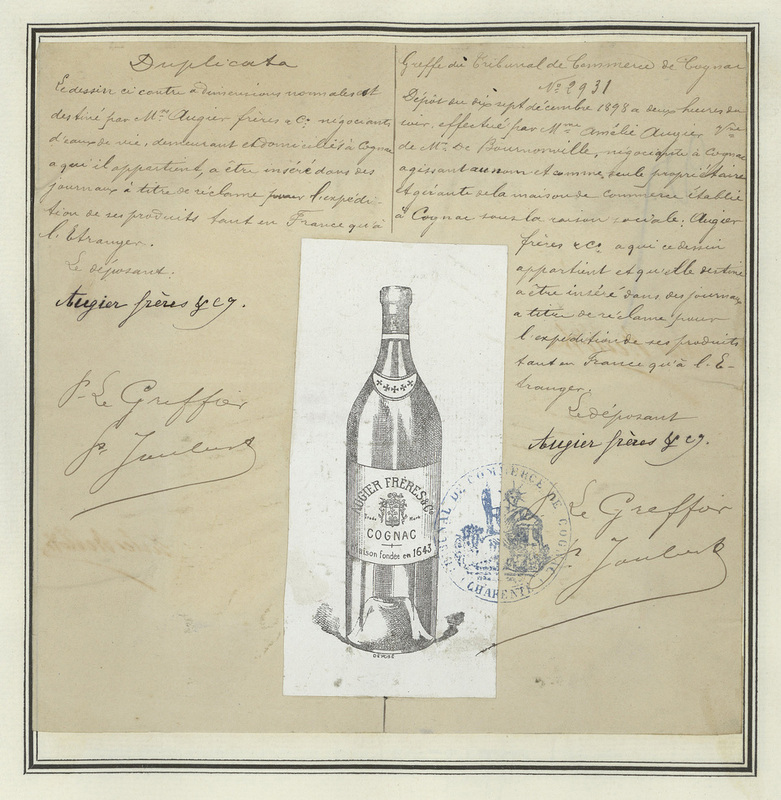 Duplicata
Le dessin ci contre a dimensions normales est
destiné par Mrs Augier frères & Co négociants
d'eaux de vie, demeurant et domiciliés à Cognac
a qui il appartient, a être inséré dans des
journaux à titre de réclame pour l'expédi-
tion de ses produits tant en France qu'à
l'Etranger.
Le déposant:
Augier frères & Co.
Pr Le Greffier
Pr Joubert
Greffe du Tribunal de Commerce de Cognac
No 2931
Dépôt du dix sept décembre 1898 a deux heures du
soir, effectué par Mme Amélie Augier Vve
de Mr De Bournonville, négociante à Cognac
agissant au nom et comme seule propriétaire
et gérante de la maison de commerce établie
à Cognac sous la raison sociale: Augier
frères & Co. a qui ce dessin
appartient et qu'elle destine
a être inséré dans des journaux
a titre de réclame pour
l'expédition de ses produits
tant en France qu'à l'E-
tranger.
Le déposant
Augier frères & Co.
Le Greffier
Pr Joubert
AUGIER FRÈRES & Co
Trade Mark
COGNAC
Maison fondée en 1643
TRIBUNAL DE COMMERCE DE COGNAC
CHARENTE